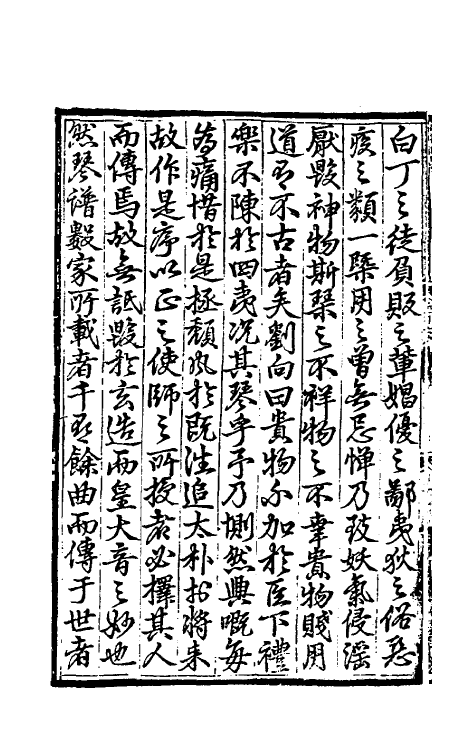 白丁之徒負販之輩娼優之鄙夷狄之俗惡
疾之類一槩用之曾無忌憚乃致妖氣侵淫
厭毀神物斯琴之不祥物之不幸貴物賤用
道有不古者矣劉向曰貴物不加於臣下禮
樂不陳於四夷况其琴乎予乃惻然興嘅每
為痛惜於是拯頹風於既往追太朴於將来
故作是序以正之使師之所授者必擇其人
而傳焉故無詆毀於玄造而皇大音之妙也
然琴譜數家所載者千有餘曲而傳于世者